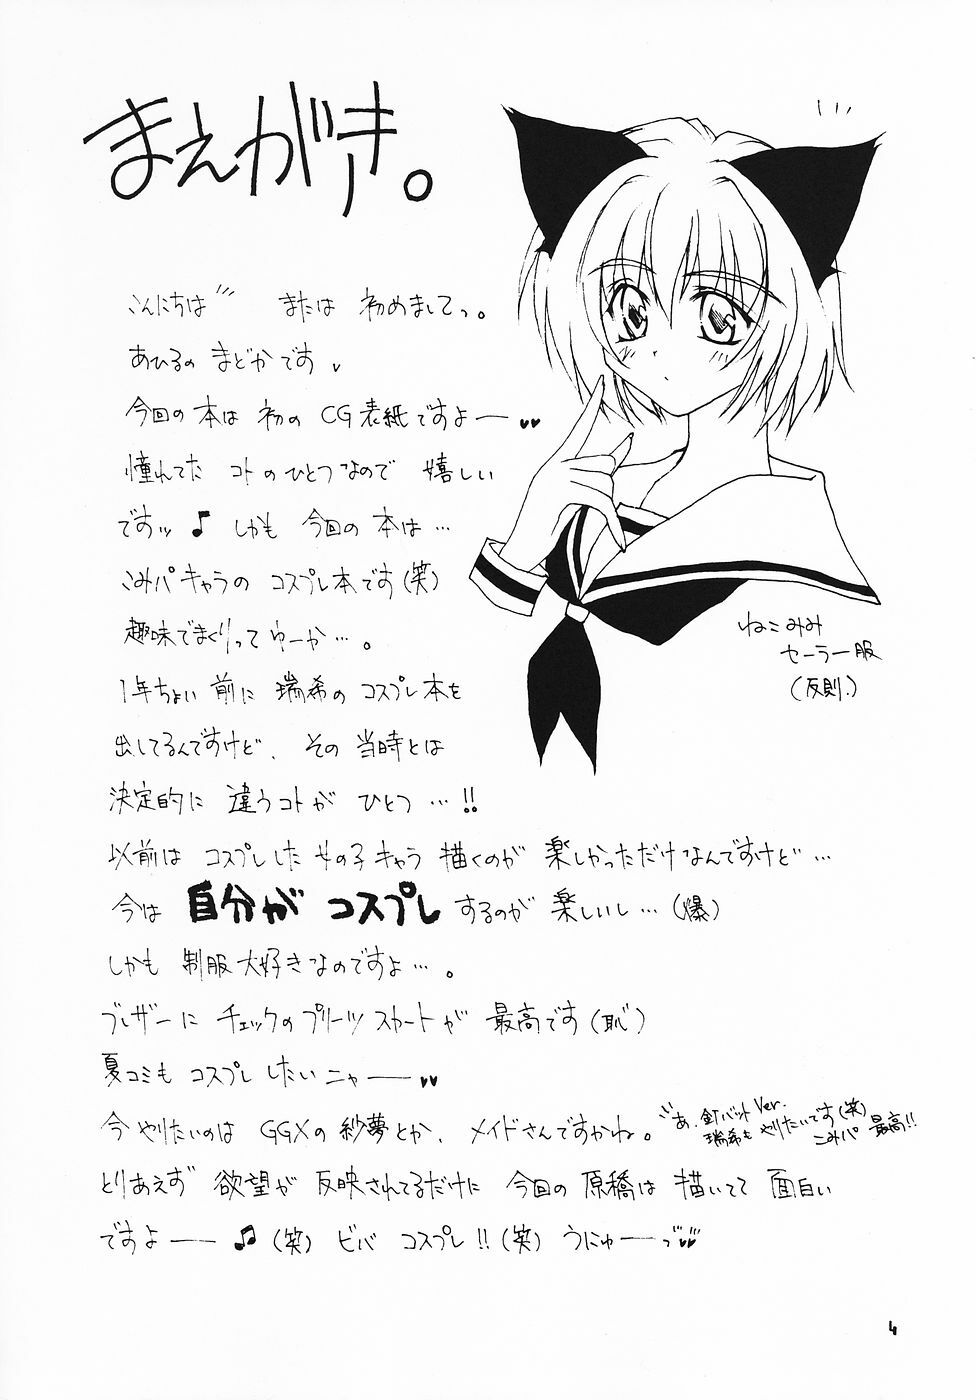 まえがき。
こんにちは または 初めましてっ。
あひるの まどかです
今回の 本は 初の CG表紙ですよー♥♥
憧れてた コトの ひとつなので 嬉しい
ですッ♪ しかも 今回の 本は…
こみパキャラの コスプレ本です(笑)
趣味でまくりって ゆーか…。
1年ちょい 前に 瑞希の コスプレ本を
出してるんですけど、その 当時とは
決定的に 違うコトが ひとつ…!!
以前は コスプレした 女の子キャラ 描くのが 楽しかっただけなんですけど…
今は 自分が コスプレ するのが 楽しいし…(爆)
しかも 制服大好きなのですよ…。
ブレザーに チェックの プリーツ スカートが 最高です(恥)
夏コミも コスプレ したいニャー♥♥
今 やりたいのは GGXの 紗夢とか、メイドさんですかね。
あ、釘バット Ver.
瑞希も やりたいです(笑)
こみパ 最高!!
とりあえず 欲望が 反映されてるだけに 今回の 原稿は 描いてて 面白い
ですよー ♫ (笑) ビバ コスプレ!!(笑) うにゅーっ♥♥
ねこみみ
セーラー服
(反則。)
4